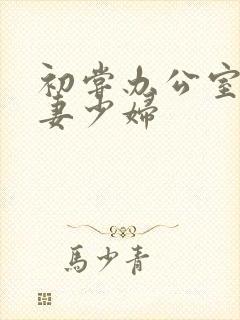 初嘗办公室
妻少婦
馬少青